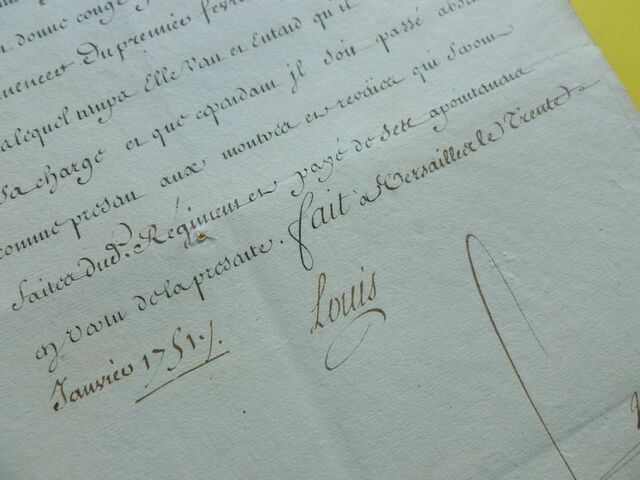 donne congé
Du premier fevri
lequel temps Elle Van en Entend qu'il
Sa charge et que cependam jl Soit passé absen
comme presan aux montres en reveües qui Seron
faites dud. Régimen en payé de Ses apointemens
en Vertu de la presente. fait a Versailles le Trente
Janvier 1751./.
Louis